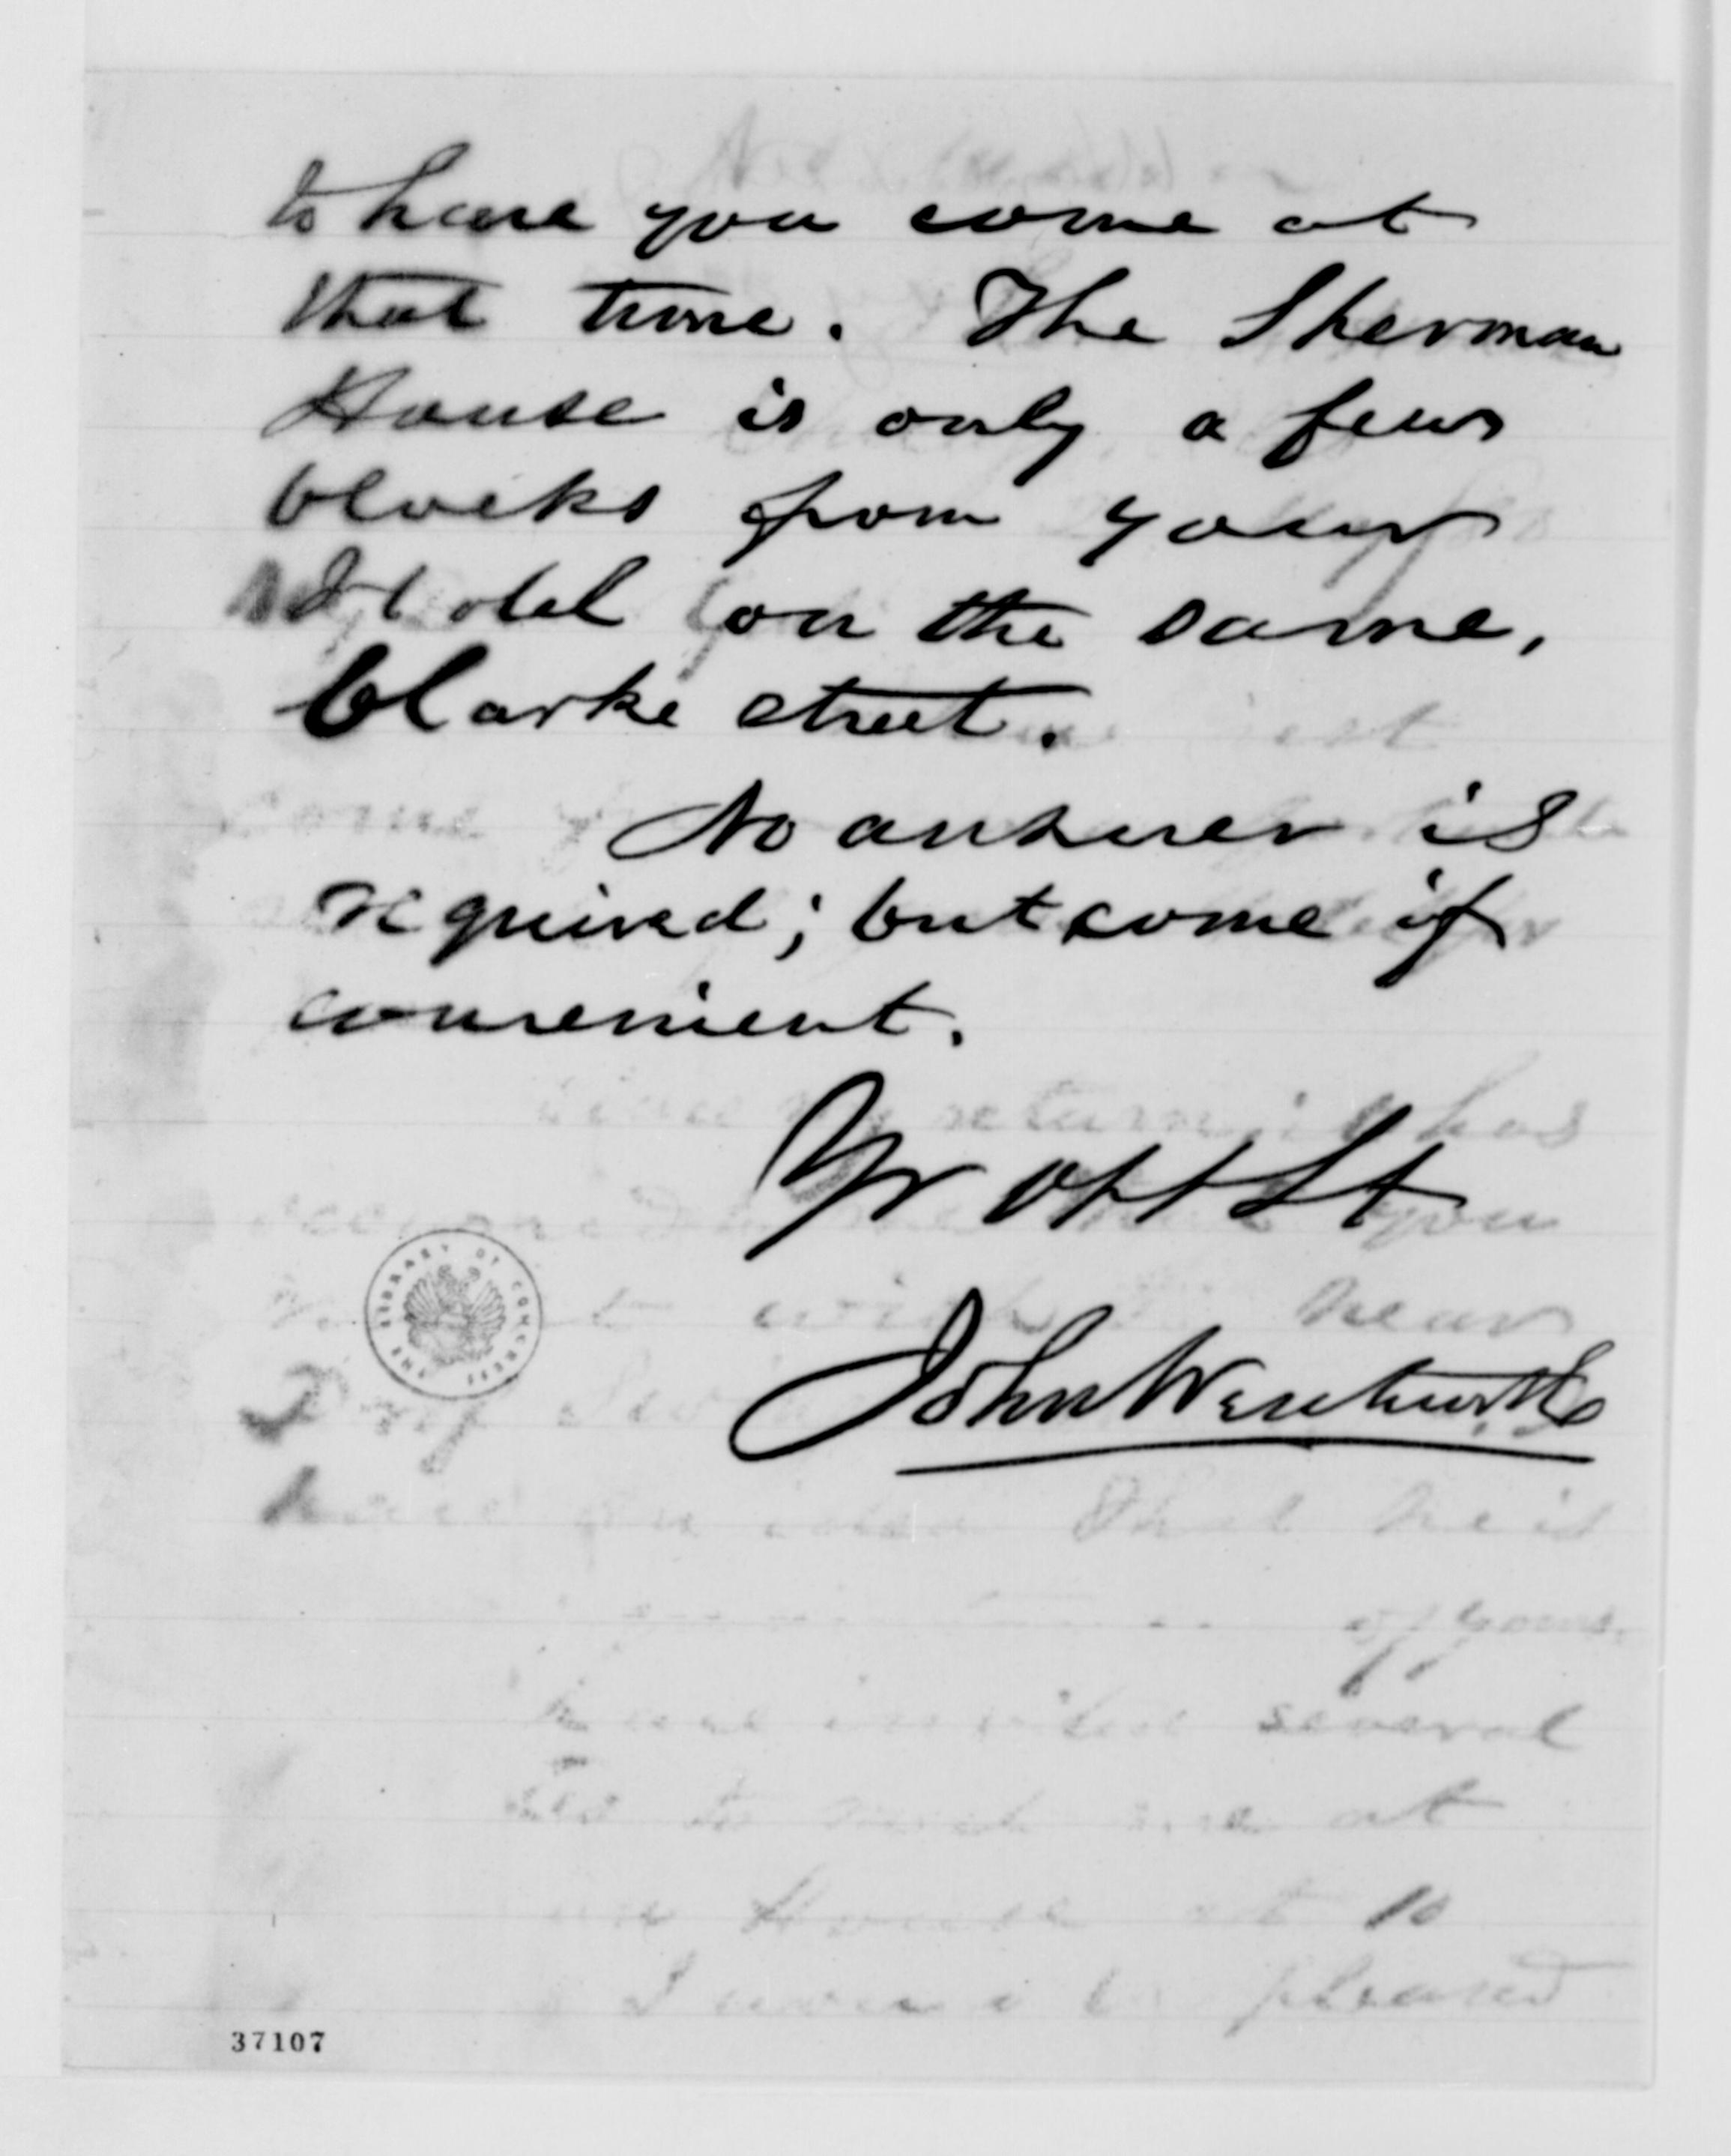 to have you come at
that time. The Sherman
House is only a few
blocks from your
Hotel on the same,
Clarke street.
No answer is
required; but come if
convenient.
Yr obt St
John Wentworth
THE LIBRARY OF CONGRESS
37107